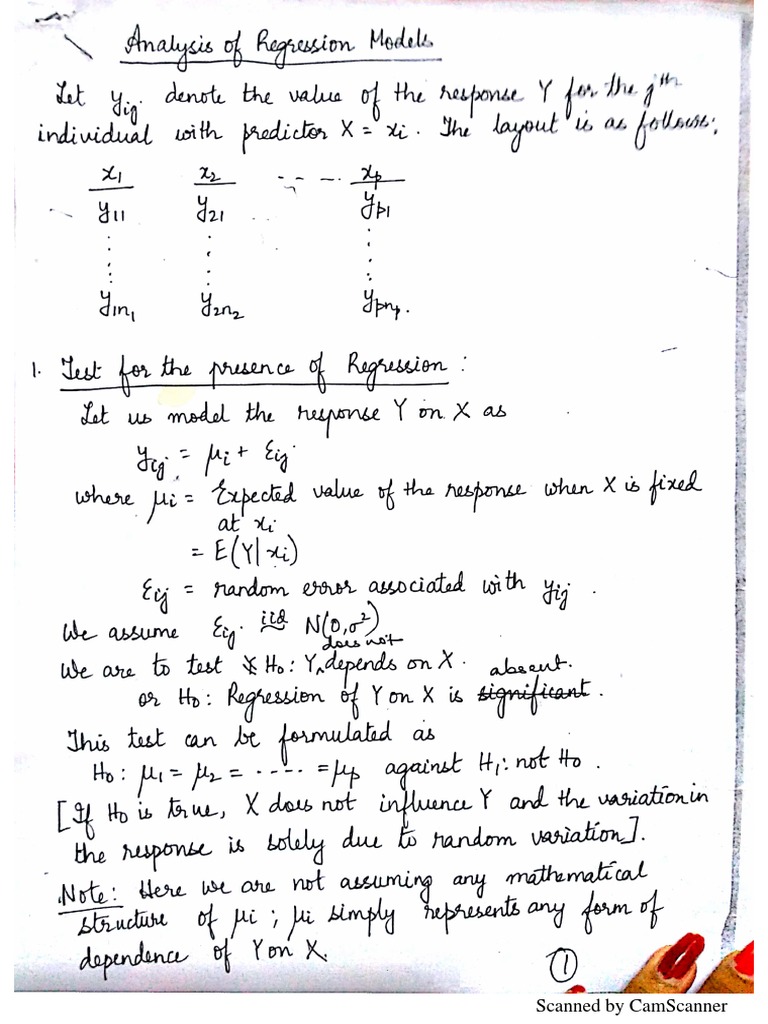 Analysis of Regression Models
Let yij denote the value of the response Y for the jth
individual with predictor X = xi. The layout is as follows:
x1 x2 - - - . xp
y11 y21 yp1
y1n1 y2n2 ypnp.
1. Test for the presence of Regression :
Let us model the response Y on X as
yij = μi + Ɛij
where μi = Expected value of the response when X is fixed
at xi
= E(Y|xi)
Ɛij = random error associated with yij .
We assume Ɛij iid ~ N(0,σ²)
does not
We are to test H0: Y depends on X. absent.
or H0: Regression of Y on X is significant.
This test can be formulated as
H0: μ1 = μ2 = ..... = μp against H1: not H0 .
[If H0 is true, X does not influence Y and the variation in
the response is solely due to random variation].
Note: Here we are not assuming any mathematical
structure of μi ; μi simply represents any form of
dependence of Y on X.
1
Scanned by CamScanner